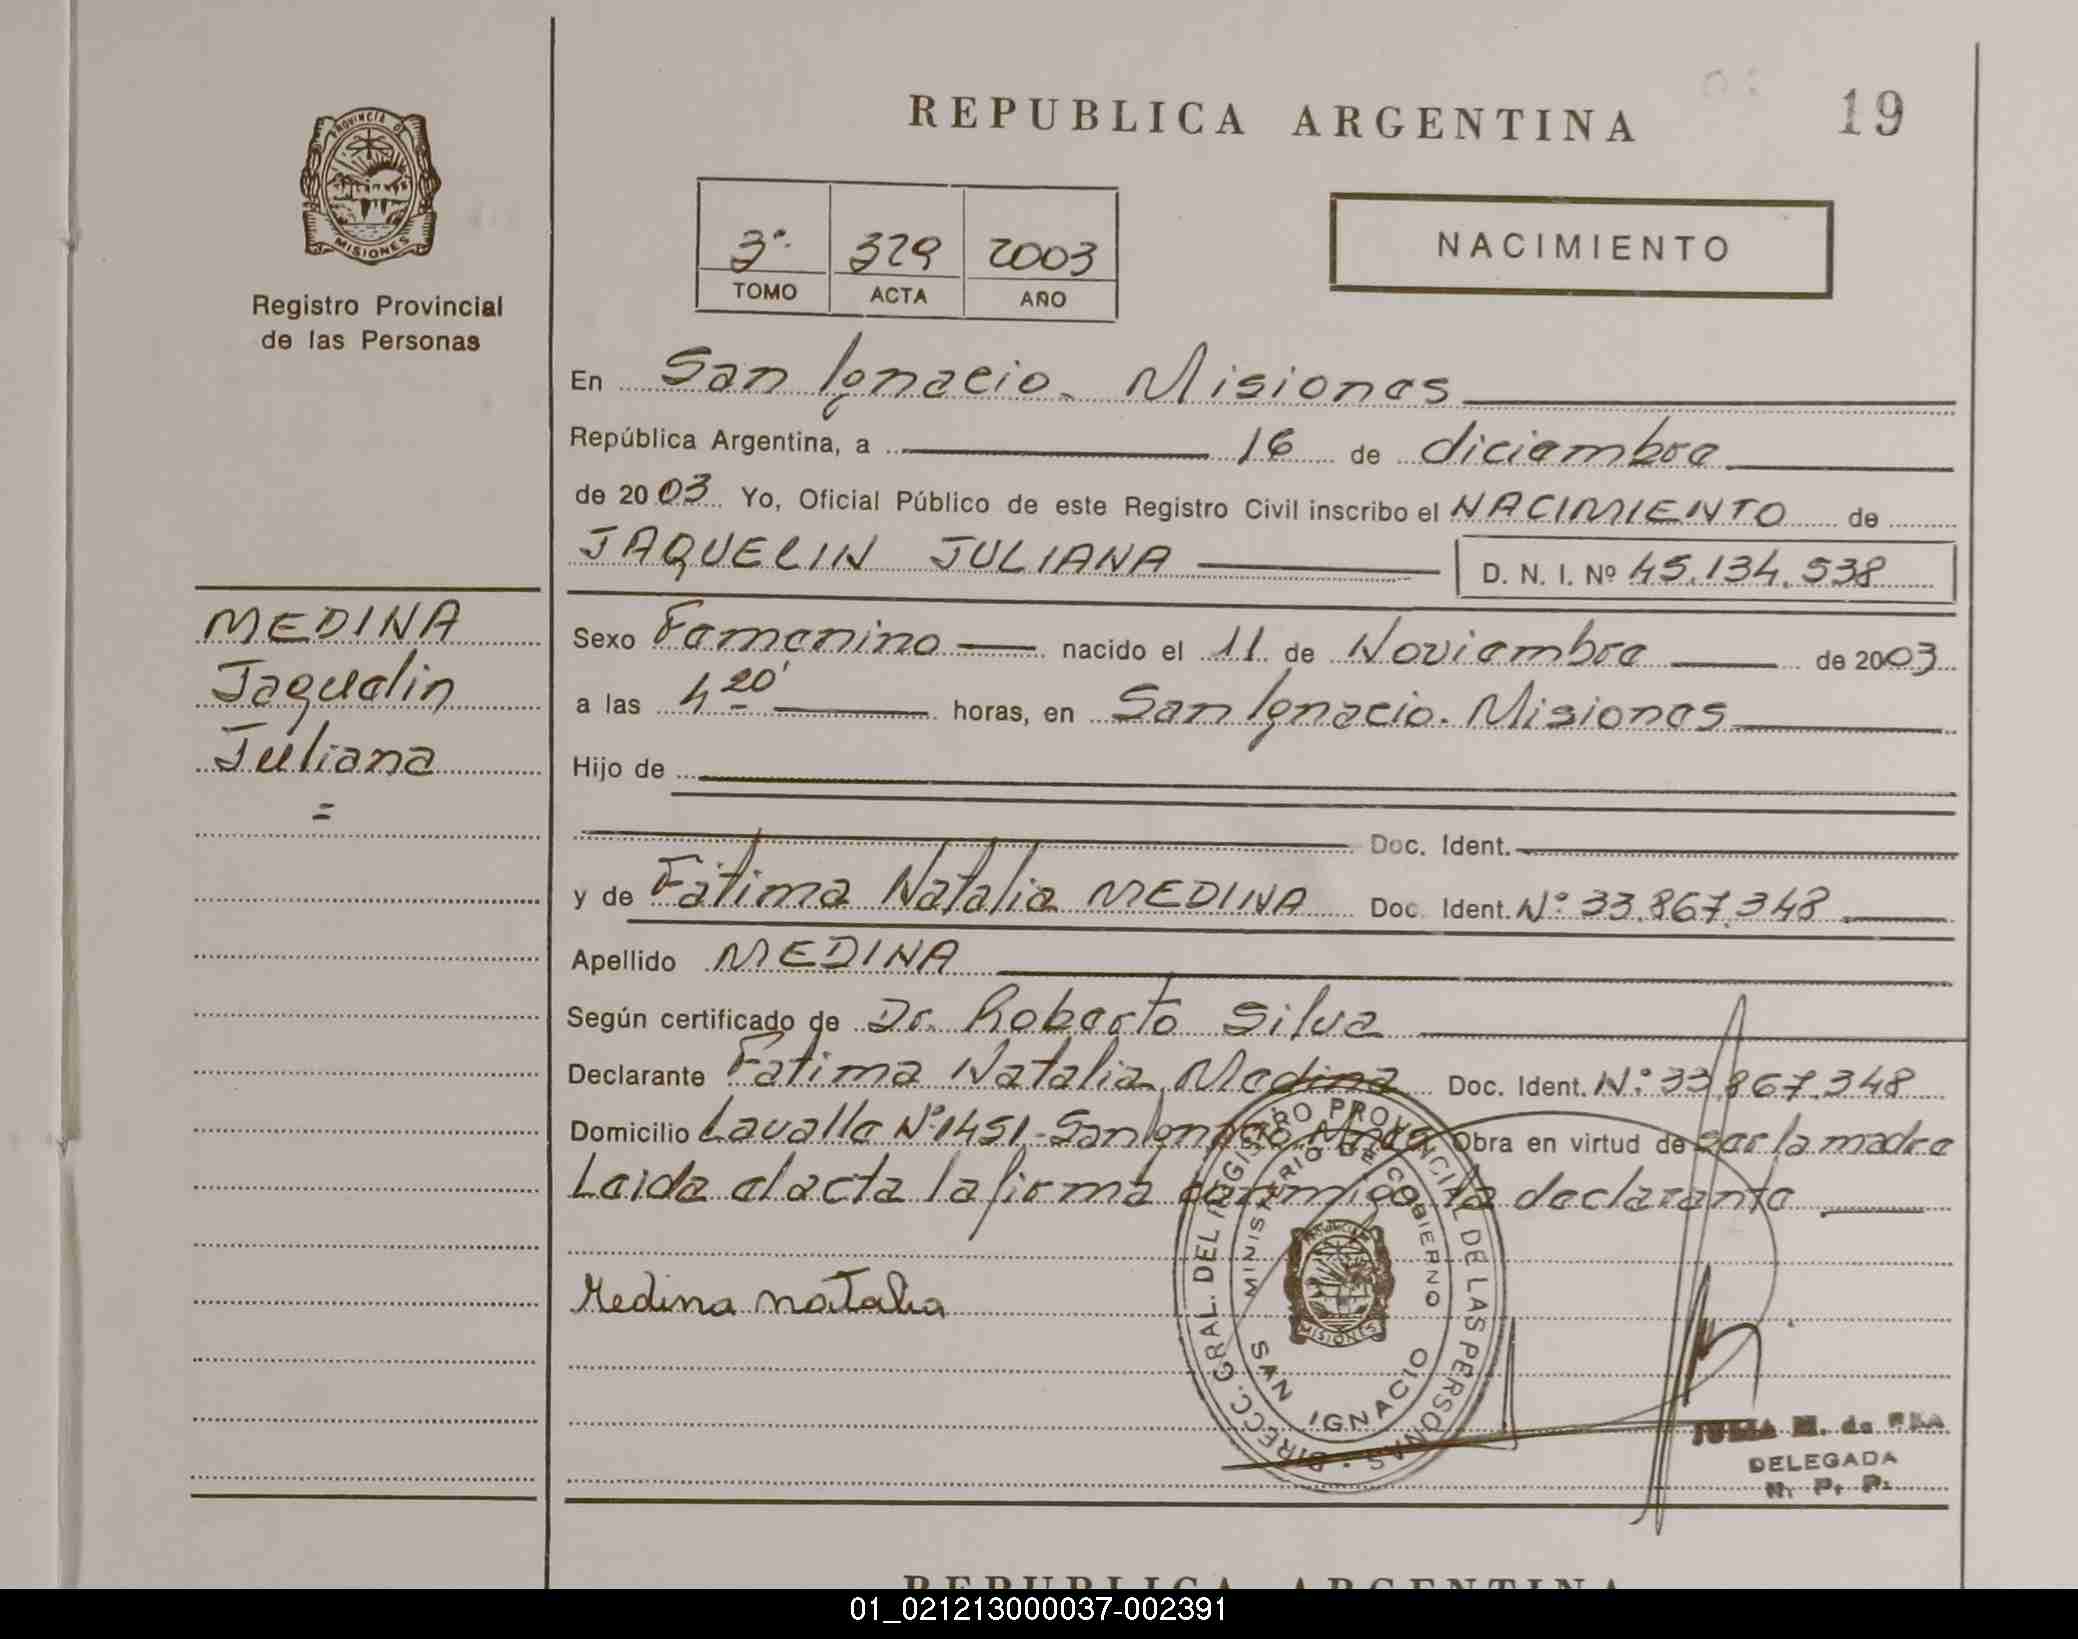 REPUBLICA ARGENTINA
19
PROVINCIA DE
MISIONES
Registro Provincial
de las Personas
3º. 329 2003
TOMO ACTA AÑO
NACIMIENTO
En San Ignacio. Misiones
República Argentina, a 16 de diciembre
de 2003 Yo, Oficial Público de este Registro Civil inscribo el NACIMIENTO de
JAQUELIN JULIANA D. N. I. Nº 45.134.538
MEDINA
Jaquelin
Juliana
=
Sexo Femenino nacido el 11 de Noviembre de 2003
a las 4 20' horas, en San Ignacio. Misiones
Hijo de
Doc. Ident.
y de Fátima Natalia MEDINA Doc. Ident. Nº 33.867.348
Apellido MEDINA
Según certificado de Dr. Roberto Silva
Declarante Fátima Natalia Medina Doc. Ident. Nº 33.867.348
Domicilio Lavalle Nº 1451 - San Ignacio Mnes Obra en virtud de ser la madre
Leida el acta la firma conmigo la declarante
Medina Natalia
DIRECC. GRAL. DEL REGISTRO PROVINCIAL DE LAS PERSONAS
MINISTERIO DE GOBIERNO
MISIONES
SAN IGNACIO
M. de
DELEGADA
P. P.
REPUBLICA ARGENTINA
01_021213000037-002391